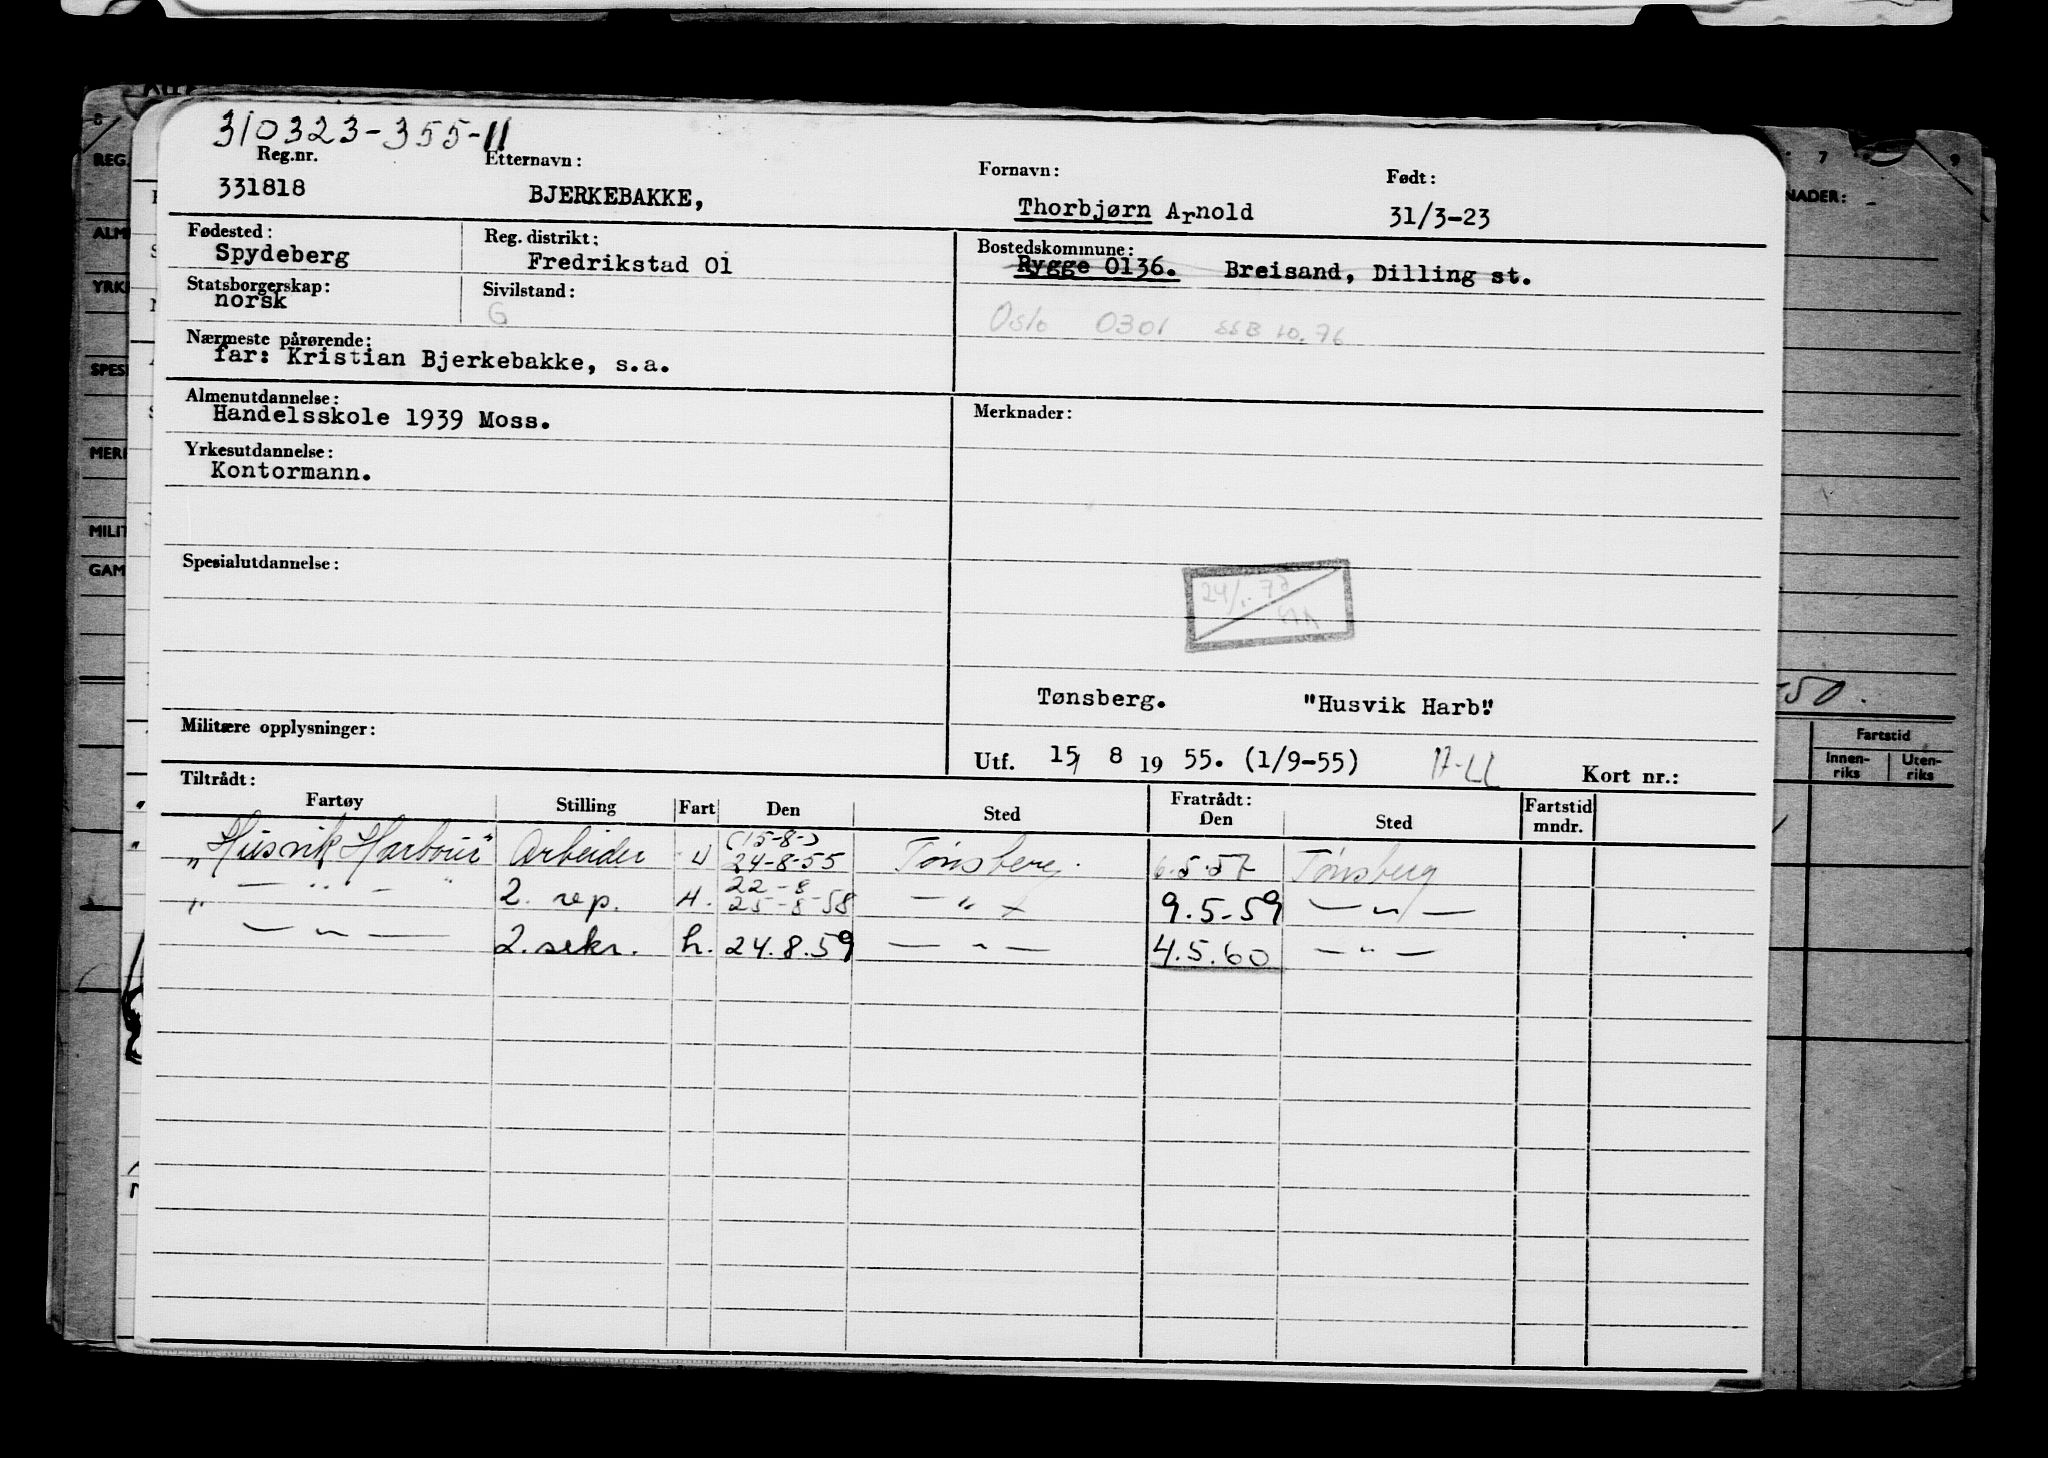 310323-355-11
Reg.nr. Etternavn: Fornavn: Født:
331818 BJERKEBAKKE, Thorbjørn Arnold 31/3-23
Fødested: Reg. distrikt: Bostedskommune:
Spydeberg Fredrikstad 01 Rygge 0136. Breisand, Dilling st.
Statsborgerskap: Sivilstand:
norsk G Oslo 0301 SSB 10.76
Nærmeste pårørende:
far: Kristian Bjerkebakke, s.a.
Almenutdannelse: Merknader:
Handelsskole 1939 Moss.
Yrkesutdannelse:
Kontormann.
Spesialutdannelse:
Tønsberg. "Husvik Harb."
Militære opplysninger:
Utf. 15/ 8 19 55. (1/9-55) Kort nr.:
Tiltrådt: Fratrådt:
Fartøy Stilling Fart Den Sted Den Sted Fartstid mndr.
(15-8-)
"Husvik Harbour" Arbeider 24-8-55 Tønsberg. 6.5.57 Tønsberg
22-8
— " — 2. rep. H. 25-8-58 — " — 9.5-59 — " —
— " — 2. sekr. h. 24.8.59 — " — 4.5.60 — " —
REG.
ALM
YRK
SPES
MER
MILIT
GAM
7 9
NADER:
-50.
Fartstid
Innen-riks Uten-riks